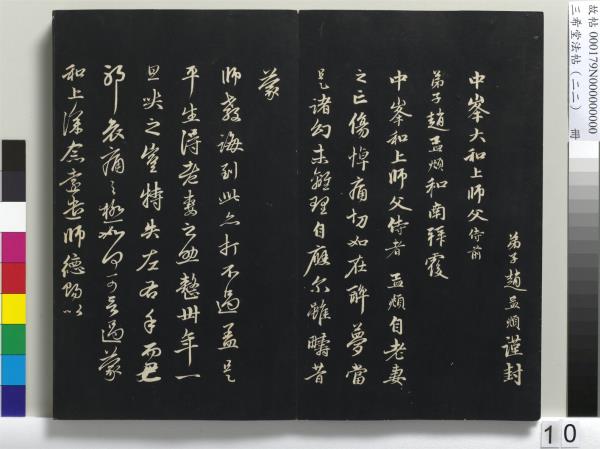 弟子趙孟頫謹封
中峯大和上師父侍前
弟子趙孟頫和南拜覆
中峯和上師父侍者孟頫自老妻
之亡傷悼痛切如在醉夢當
是諸幻未離理自應爾雖疇昔
蒙
師教誨到此亦打不過蓋是
平生得老妻之助整卅年一
旦哭之豈特失左右手而已
耶哀痛之極如何可言過蒙
和上深念遠遣師德賜以
故帖000179N000000000
三希堂法帖(二二) 冊
10